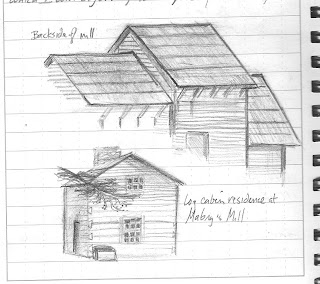 Backside of mill
Log cabin residence at
Mabry's Mill